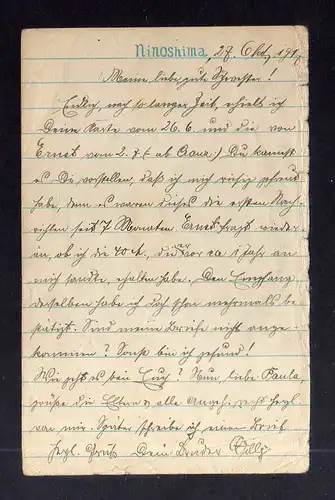 Ninoshima, 27. Okt. 191
Meine liebe, gute Schwester!
Endlich, nach so langer Zeit, erhielt ich
Deine Karte vom 26.6. und die von
Ernst vom 2. ab Du kannst
es Dir vorstellen, daß ich mich riesig gefreut
habe, denn es waren dieses die ersten Nach-
richten seit 7 Monaten. Ernst fragt wieder
an, ob ich die 40 M, die er vor ca 1 Jahr an
mich sandte, erhalten habe. Den Empfang
derselben habe ich doch schon mehrmals be-
stätigt. Sind meine Briefe nicht ange-
kommen? Sonst bin ich gesund!
Wie geht es bei Euch? Nun, liebe Paula,
grüße die Eltern & alle recht herzl.
von mir. Später schreibe ich einen Brief
Herzl. Gruß Dein Bruder Willy